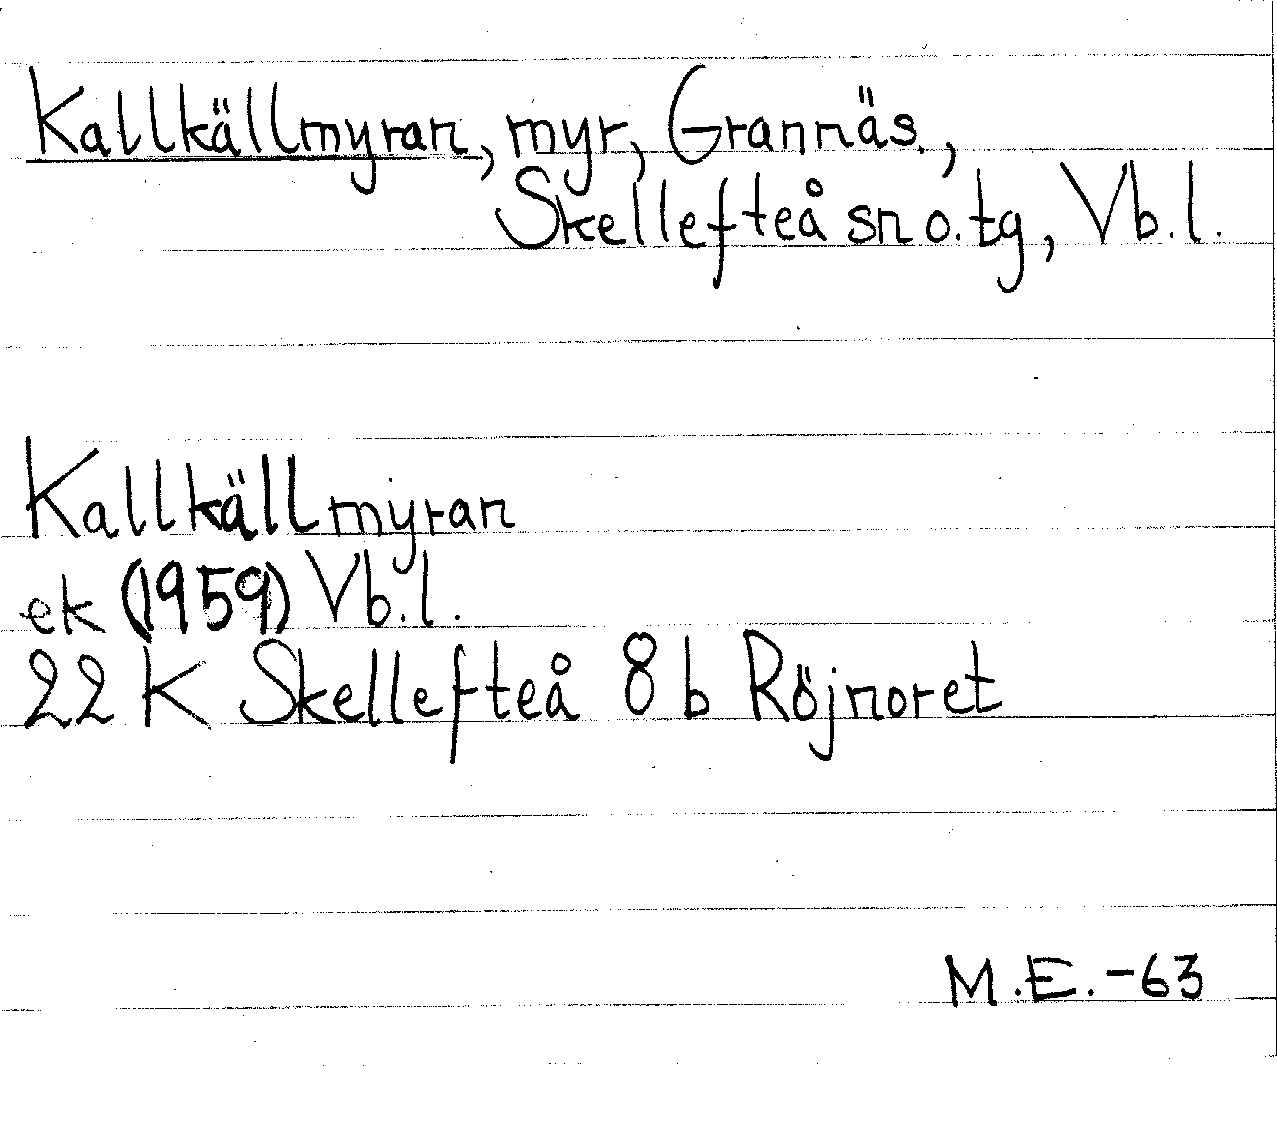 Kallkällmyran, myr, Grannäs.,
Skellefteå sn o. tg, Vb. l.
Kallkällmyran
ek (1959) Vb. l.
22 K Skellefteå 8 b Röjnoret
M. E. -63